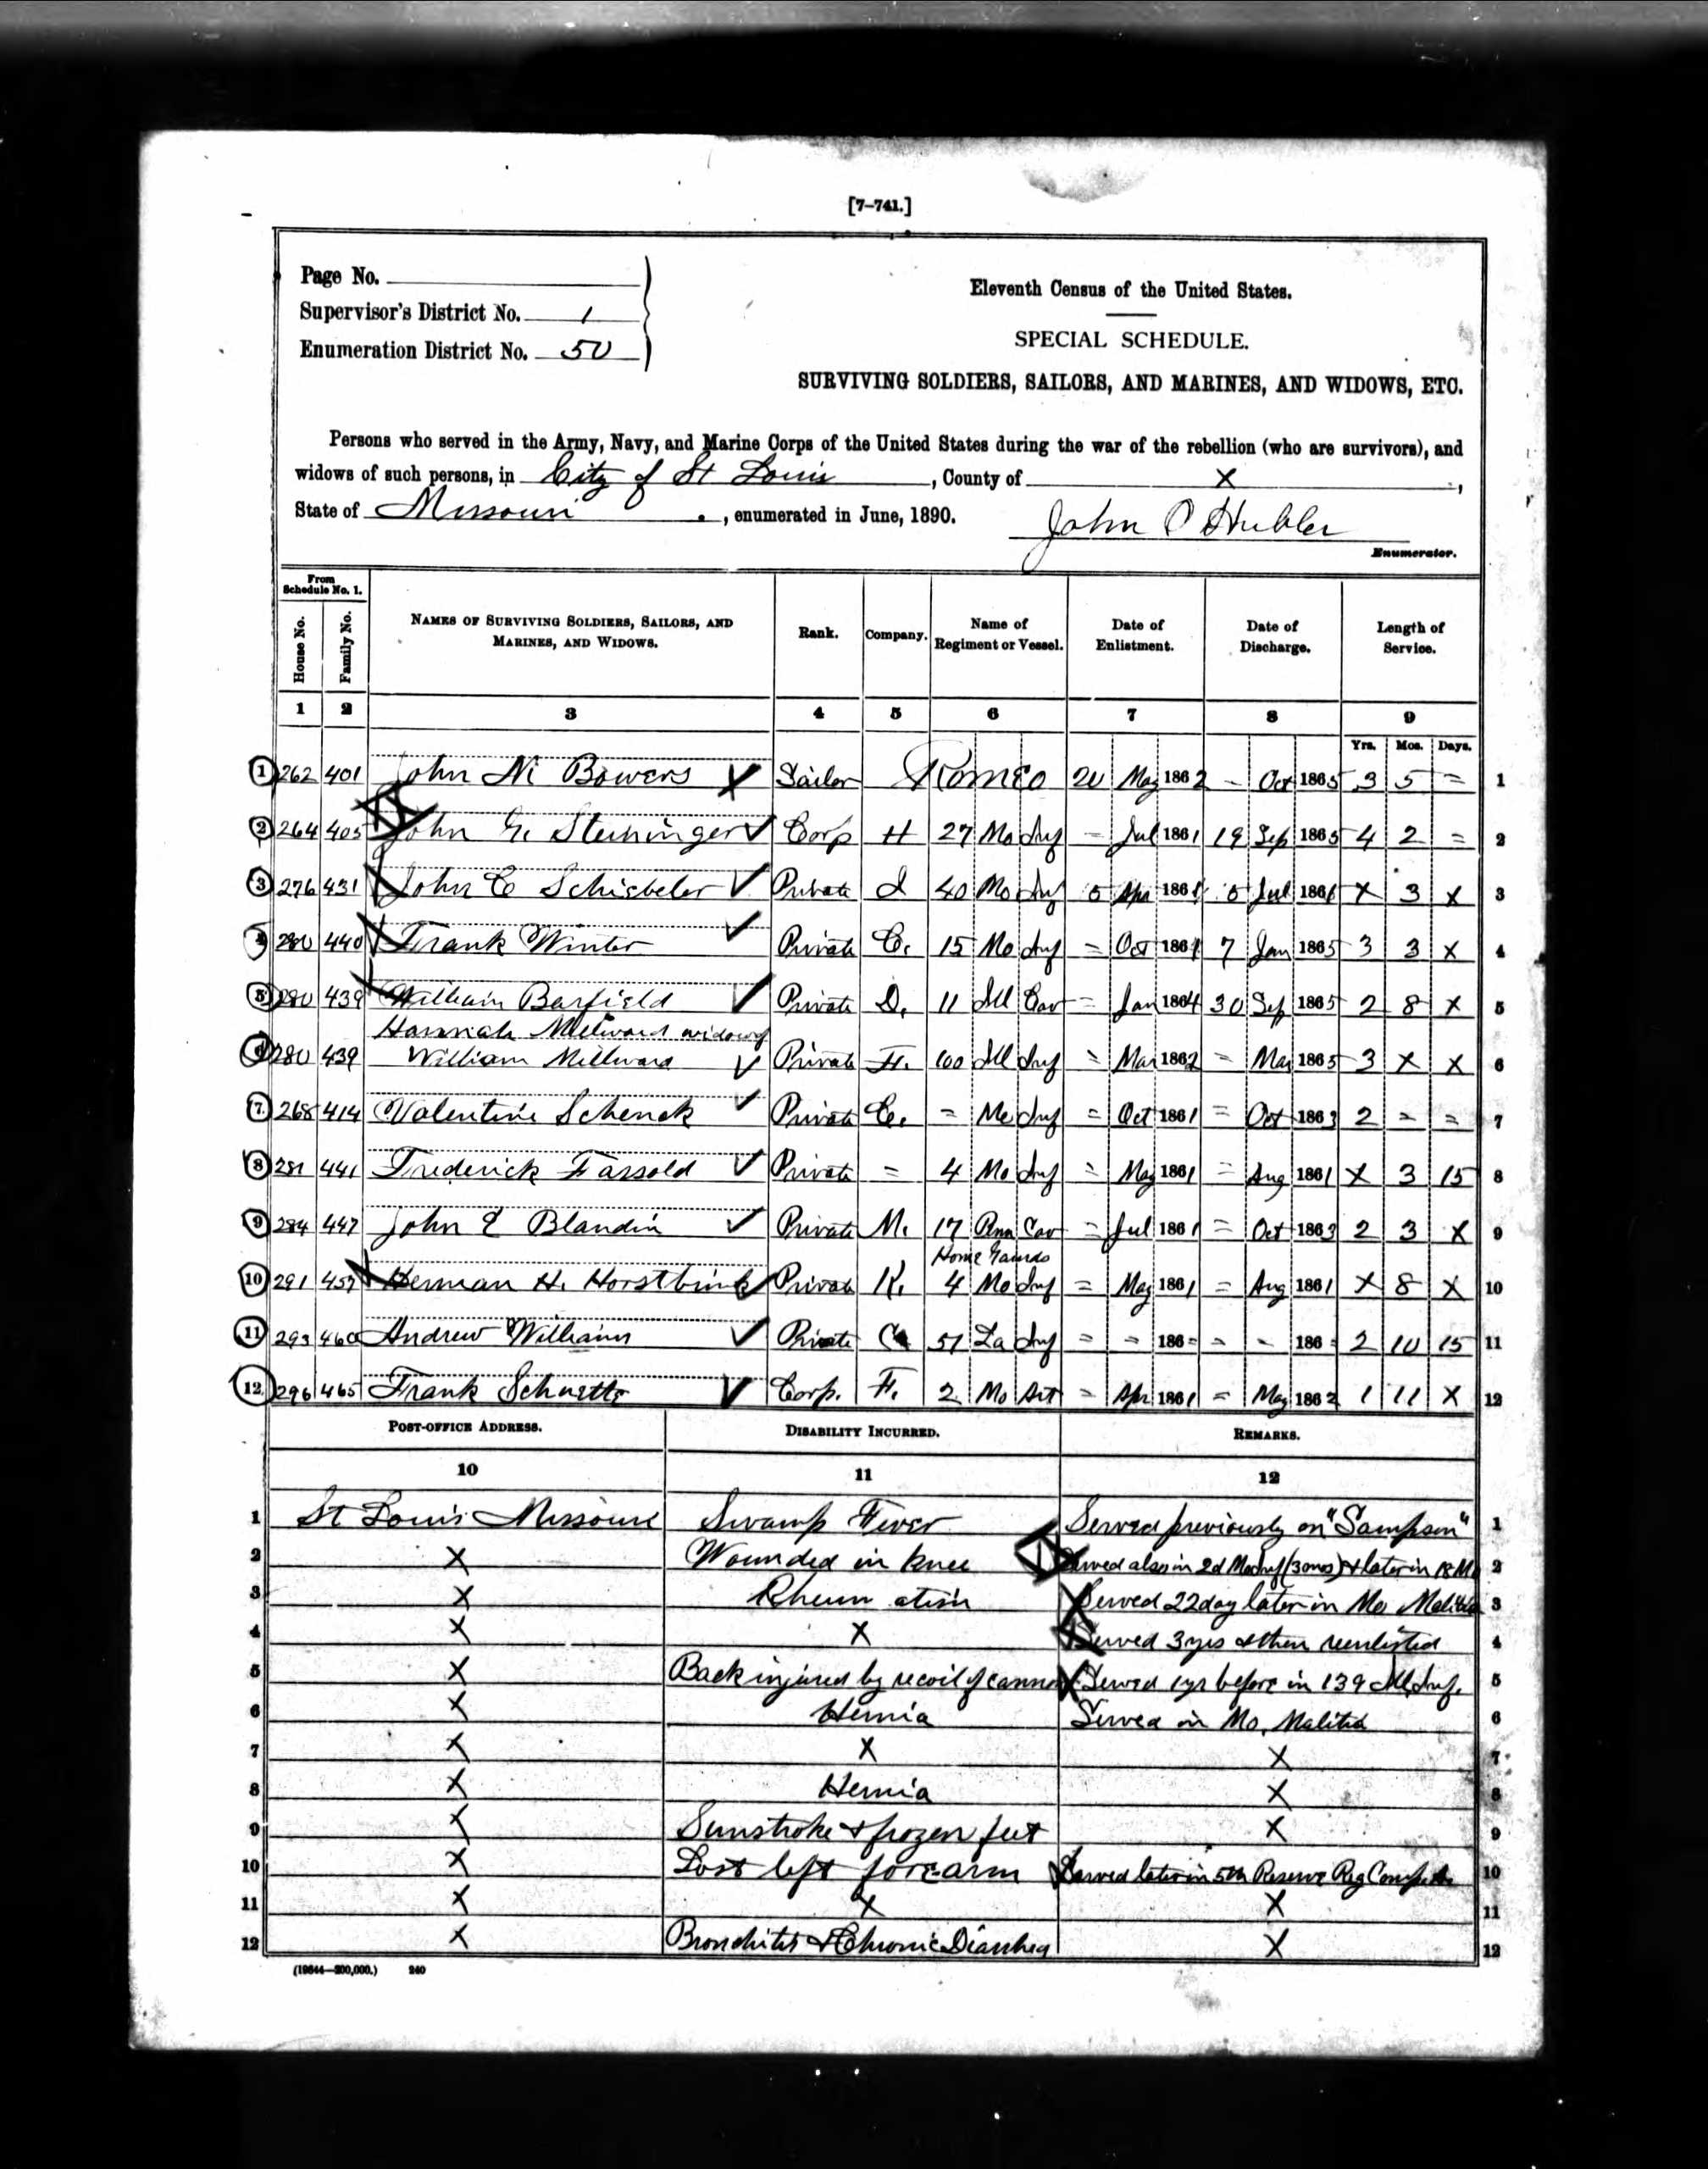 [7-741.]
Page No.
Supervisor's District No. 1
Enumeration District No. 50
Eleventh Census of the United States.
SPECIAL SCHEDULE.
SURVIVING SOLDIERS, SAILORS, AND MARINES, AND WIDOWS, ETC.
Persons who served in the Army, Navy, and Marine Corps of the United States during the war of the rebellion (who are survivors), and
widows of such persons, in City of St Louis, County of X,
State of Missouri, enumerated in June, 1890. John C Hubler
Enumerator.
From Schedule No. 1.
House No. Family No. NAMES OF SURVIVING SOLDIERS, SAILORS, AND MARINES, AND WIDOWS. Rank. Company. Name of Regiment or Vessel. Date of Enlistment. Date of Discharge. Length of Service.
1 2 3 4 5 6 7 8 9
Yrs. Mos. Days.
1 262 401 John M Bowers Sailor Romeo 20 May 1862 - Oct 1865 3 5 = 1
2 264 405 John G. Steininger Corp H 27 Mo Inf = Jul 1861 19 Sep 1865 4 2 = 2
3 276 431 John C Private I 40 Mo Inf Apr Jul 186 X 3 X 3
4 280 440 Frank Winter Private C. 15 Mo Inf = Oct 1861 7 Jan 1865 3 3 X 4
5 280 439 William Barfield Private D. 11 Ill Cav = Jan 1864 30 Sep 1865 2 8 X 5
Hannah Millward widow of
6 280 439 William Millward Private F. 100 Ill Inf = Mar 1862 = Mar 1865 3 X X 6
7 268 414 Valentine Schenck Private C. = Mo Inf = Oct 1861 = Oct 1863 2 = = 7
8 281 441 Frederick Fassold Private = 4 Mo Inf = May 1861 = Aug 1861 X 3 15 8
9 284 447 John E Blandin Private M. 17 Penn Cav = Jul 1861 = Oct 1863 2 3 X 9
Home Gaurds
10 291 457 Herman H. Horstbrink Private K. 4 Mo Inf = May 1861 = Aug 1861 X 8 X 10
11 293 460 Andrew Williams Private C 51 La Inf = = 186= = - 186= 2 10 15 11
12 296 465 Frank Schuette Corp. F. 2 Mo Art = Apr 1861 = May 1862 1 11 X 12
POST-OFFICE ADDRESS. DISABILITY INCURRED. REMARKS.
10 11 12
1 St Louis Missouri Swamp Fever Served previously on "Sampson" 1
2 X Wounded in knee Served also in 2d Mo Inf (3 mos) & later in 18 M 2
3 X Rheumatism Served 22 day later in Mo Malitia 3
4 X X Served 3 yrs & then reenlisted 4
5 X Back injured by recoil of cannon Served 1 yr before in 139 Ill Inf. 5
6 X Hernia Served in Mo. Malitia 6
7 X X X 7
8 X Hernia X 8
9 X Sunstroke & frozen feet X 9
10 X Lost left forearm Served later in 5th Reserve Reg 10
11 X X X 11
12 X Bronchites & Chronic Diarrhea X 12
(19644—200,000.) 240